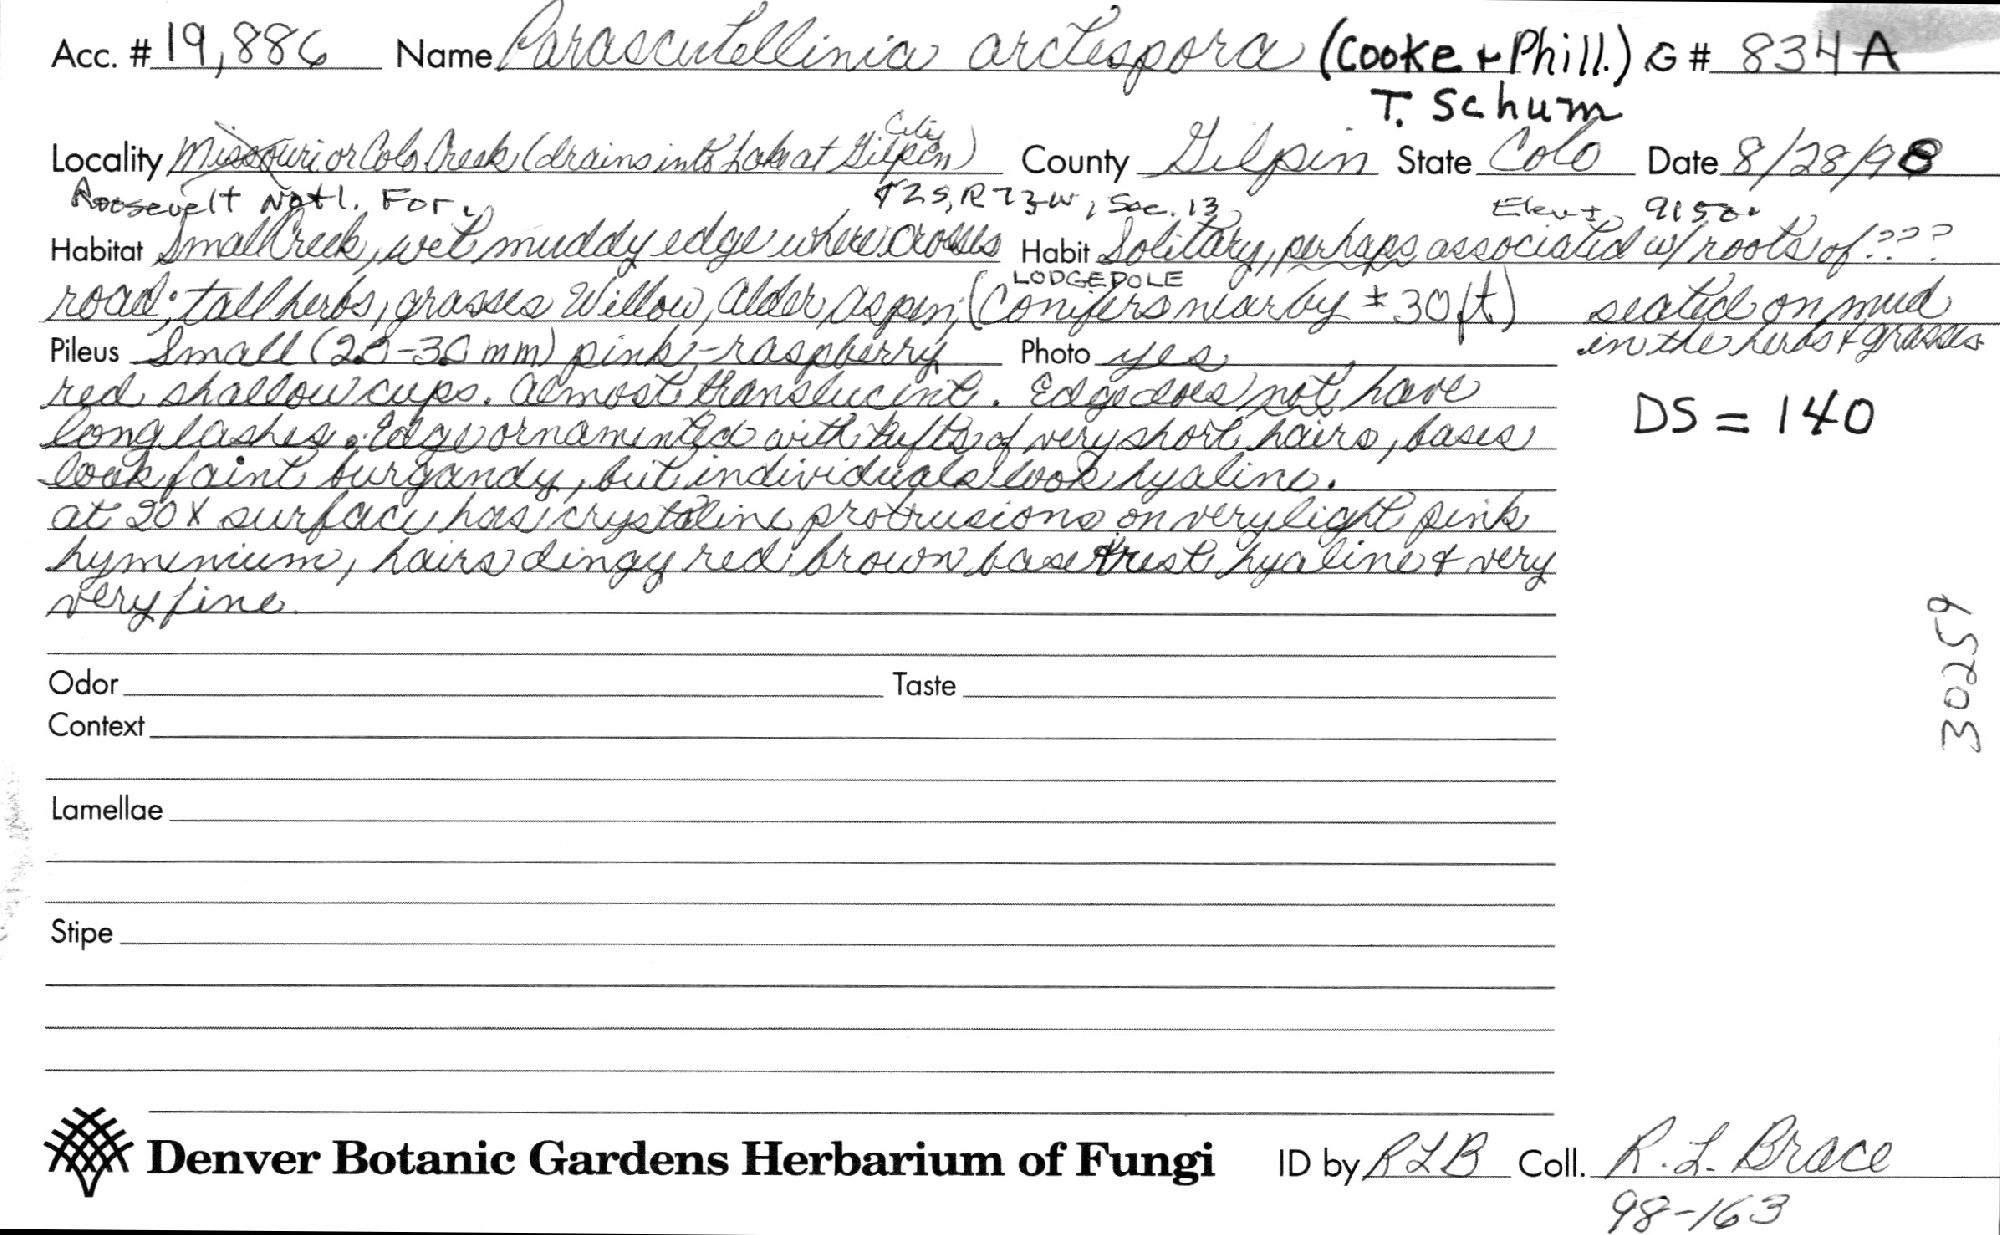 Acc. # 19,886 Name Parascutellinia arctespora (Cooke + Phill.) G # 834A
T. Schum
City
Locality Missouri or Colo Creek (drains into Lake at Gilpin) County Gilpin State Colo Date 8/28/98
Roosevelt Natl. For. T2S, R73W, Sec. 13 Elevt. 9150'
Habitat Small Creek, wet muddy edge where crosses Habit Solitary, perhaps associated w/ roots of ???
LODGEPOLE
road; tall herbs, grasses Willow, Alder Aspen, (Conifers near by ± 30 ft) seated on mud
in the herbs & grasses
Pileus Small (20-30 mm) pink-raspberry Photo yes
red shallow cups. Almost translucent. Edge does not have
long lashes. Edge ornamented with tufts of very short hairs, bases
look faint burgandy, but individuals look hyaline.
at 20X surface has crystaline protrusions on very light pink
hyminium, hairs dingy red brown base & rest hyaline & very
very fine
DS = 140
30259
Odor Taste
Context
Lamellae
Stipe
Denver Botanic Gardens Herbarium of Fungi ID by RLB Coll. R. L. Brace
98-163